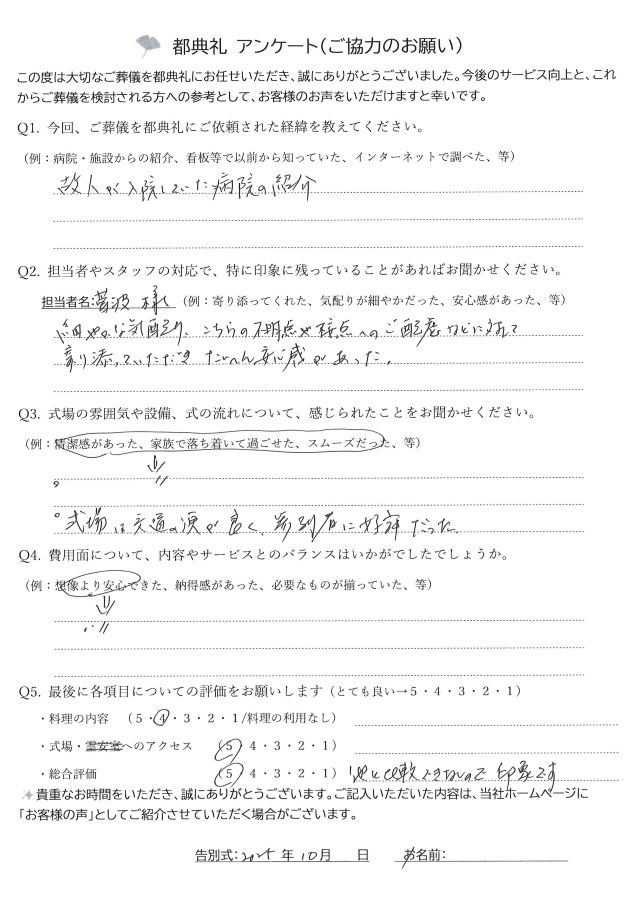 都典礼 アンケート(ご協力のお願い)
この度は大切なご葬儀を都典礼にお任せいただき、誠にありがとうございました。今後のサービス向上と、これ
からご葬儀を検討される方への参考として、お客様のお声をいただけますと幸いです。
Q1. 今回、ご葬儀を都典礼にご依頼された経緯を教えてください。
(例:病院・施設からの紹介、看板等で以前から知っていた、インターネットで調べた、等)
故人が入院していた病院の紹介
Q2. 担当者やスタッフの対応で、特に印象に残っていることがあればお聞かせください。
担当者名:菅波様 (例:寄り添ってくれた、気配りが細やかだった、安心感があった、等)
細やかな気配り、こちらの不明点や接点へのご配慮などに対して
寄り添っていただき たいへん安心感があった。
Q3. 式場の雰囲気や設備、式の流れについて、感じられたことをお聞かせください。
(例:清潔感があった、家族で落ち着いて過ごせた、スムーズだった、等)
〃
。式場は交通の便が良く、参列者に好評だった
Q4. 費用面について、内容やサービスとのバランスはいかがでしたでしょうか。
(例:想像より安心できた、納得感があった、必要なものが揃っていた、等)
〃
Q5. 最後に各項目についての評価をお願いします(とても良い→5・4・3・2・1)
・料理の内容 (5・4・3・2・1/料理の利用なし)
・式場・霊安室へのアクセス (5 4・3・2・1)
・総合評価 (5 4・3・2・1) 他と比較できないので 印象です
貴重なお時間をいただき、誠にありがとうございます。ご記入いただいた内容は、当社ホームページに
「お客様の声」としてご紹介させていただく場合がございます。
告別式:2025年10月 日 お名前: